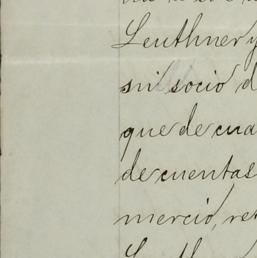 Leuthner y
su socio d
que de cua
de cuentas
mercio, ret